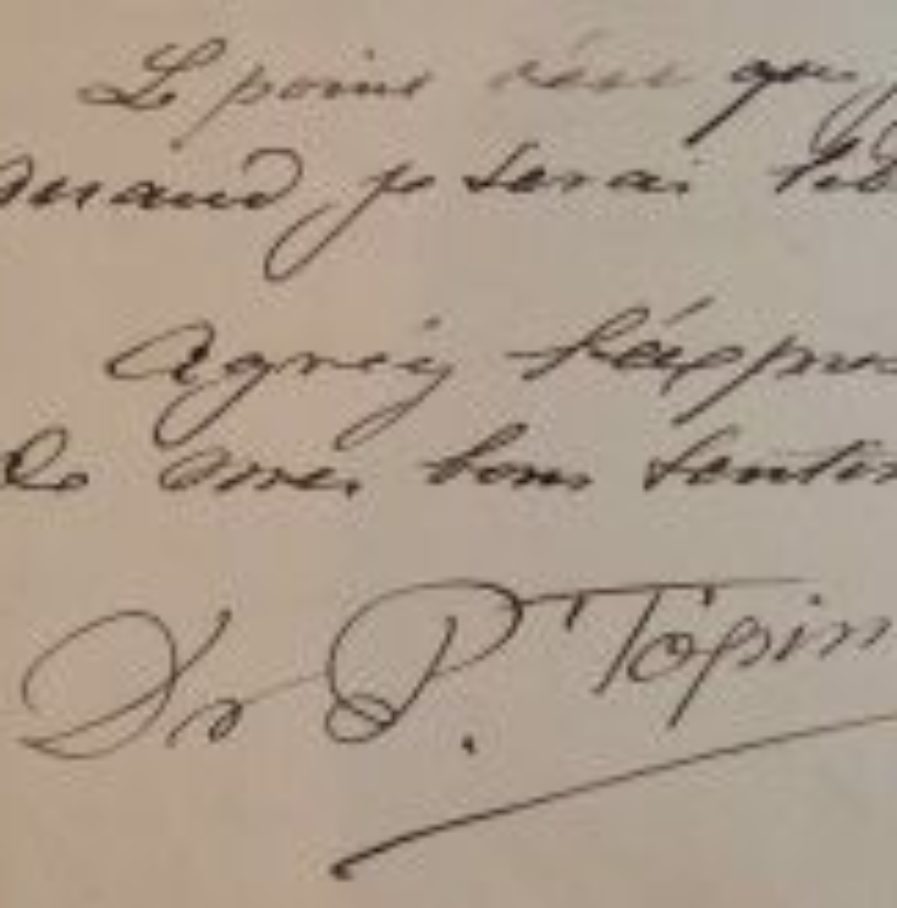 Le point c'est que j
quand je serai lib
Agréez l'expres
de mes bons sentim
Dr P. Topin